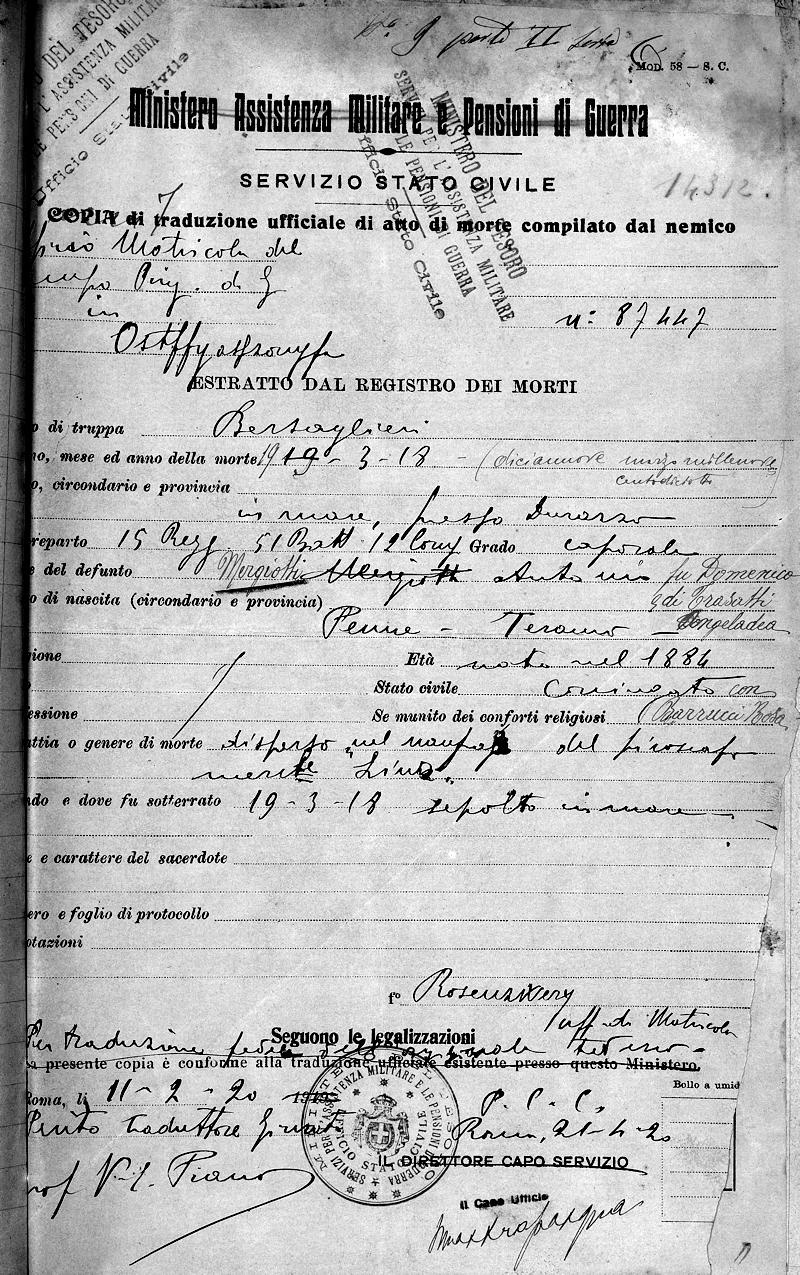 N° 9 parte II serie C
MOD. 58 – S. C.
DEL TESORO
L'ASSISTENZA MILITARE
LE PENSIONI DI GUERRA
Ufficio Stato Civile
MINISTERO DEL TESORO
SERVIZI PER L'ASSISTENZA MILITARE
E LE PENSIONI DI GUERRA
Ufficio Stato Civile
Ministero Assistenza Militare e Pensioni di Guerra
SERVIZIO STATO CIVILE
14312.
COPIA di traduzione ufficiale di atto di morte compilato dal nemico
Matricola del
Prig. di G
in
n: 87447
ESTRATTO DAL REGISTRO DEI MORTI
o di truppa Bersaglieri
no, mese ed anno della morte 19-3-18 - (diciannove marzo millenove
centodiciotto)
o, circondario e provincia
in mare, presso Durazzo
reparto 15 Regg 51 Batt 12 Comp Grado caporale
e del defunto Mergiotti Mergiotti Antonio fu Domenico
e di Trasatti
o di nascita (circondario e provincia)
Penne - Teramo - Angeladea
gione Età nato nel 1884
Stato civile Coniugato con
essione Se munito dei conforti religiosi (Barrucci Rosa
attia o genere di morte disperso nel naufrag del piroscafo
"Linz"
ndo e dove fu sotterrato 19-3-18 sepolto in mare
e e carattere del sacerdote
ero e foglio di protocollo
otazioni
f° Rosenzwerg
uff. di Matricola
Seguono le legalizzazioni
Per traduzione fedele dell'originale tedesco -
a presente copia è conforme alla traduzione ufficiale esistente presso questo Ministero.
Roma, li 11-2-20 1919
Bollo a umid
P. C. C.
Perito traduttore Giurato
Roma, 21-4-20
IL DIRETTORE CAPO SERVIZIO
Prof V. E. Piano
Il Capo Ufficio
MINISTERO DEL TESORO
SERVIZI PER L'ASSISTENZA MILITARE E LE PENSIONI DI GUERRA
UFFICIO STATO CIVILE